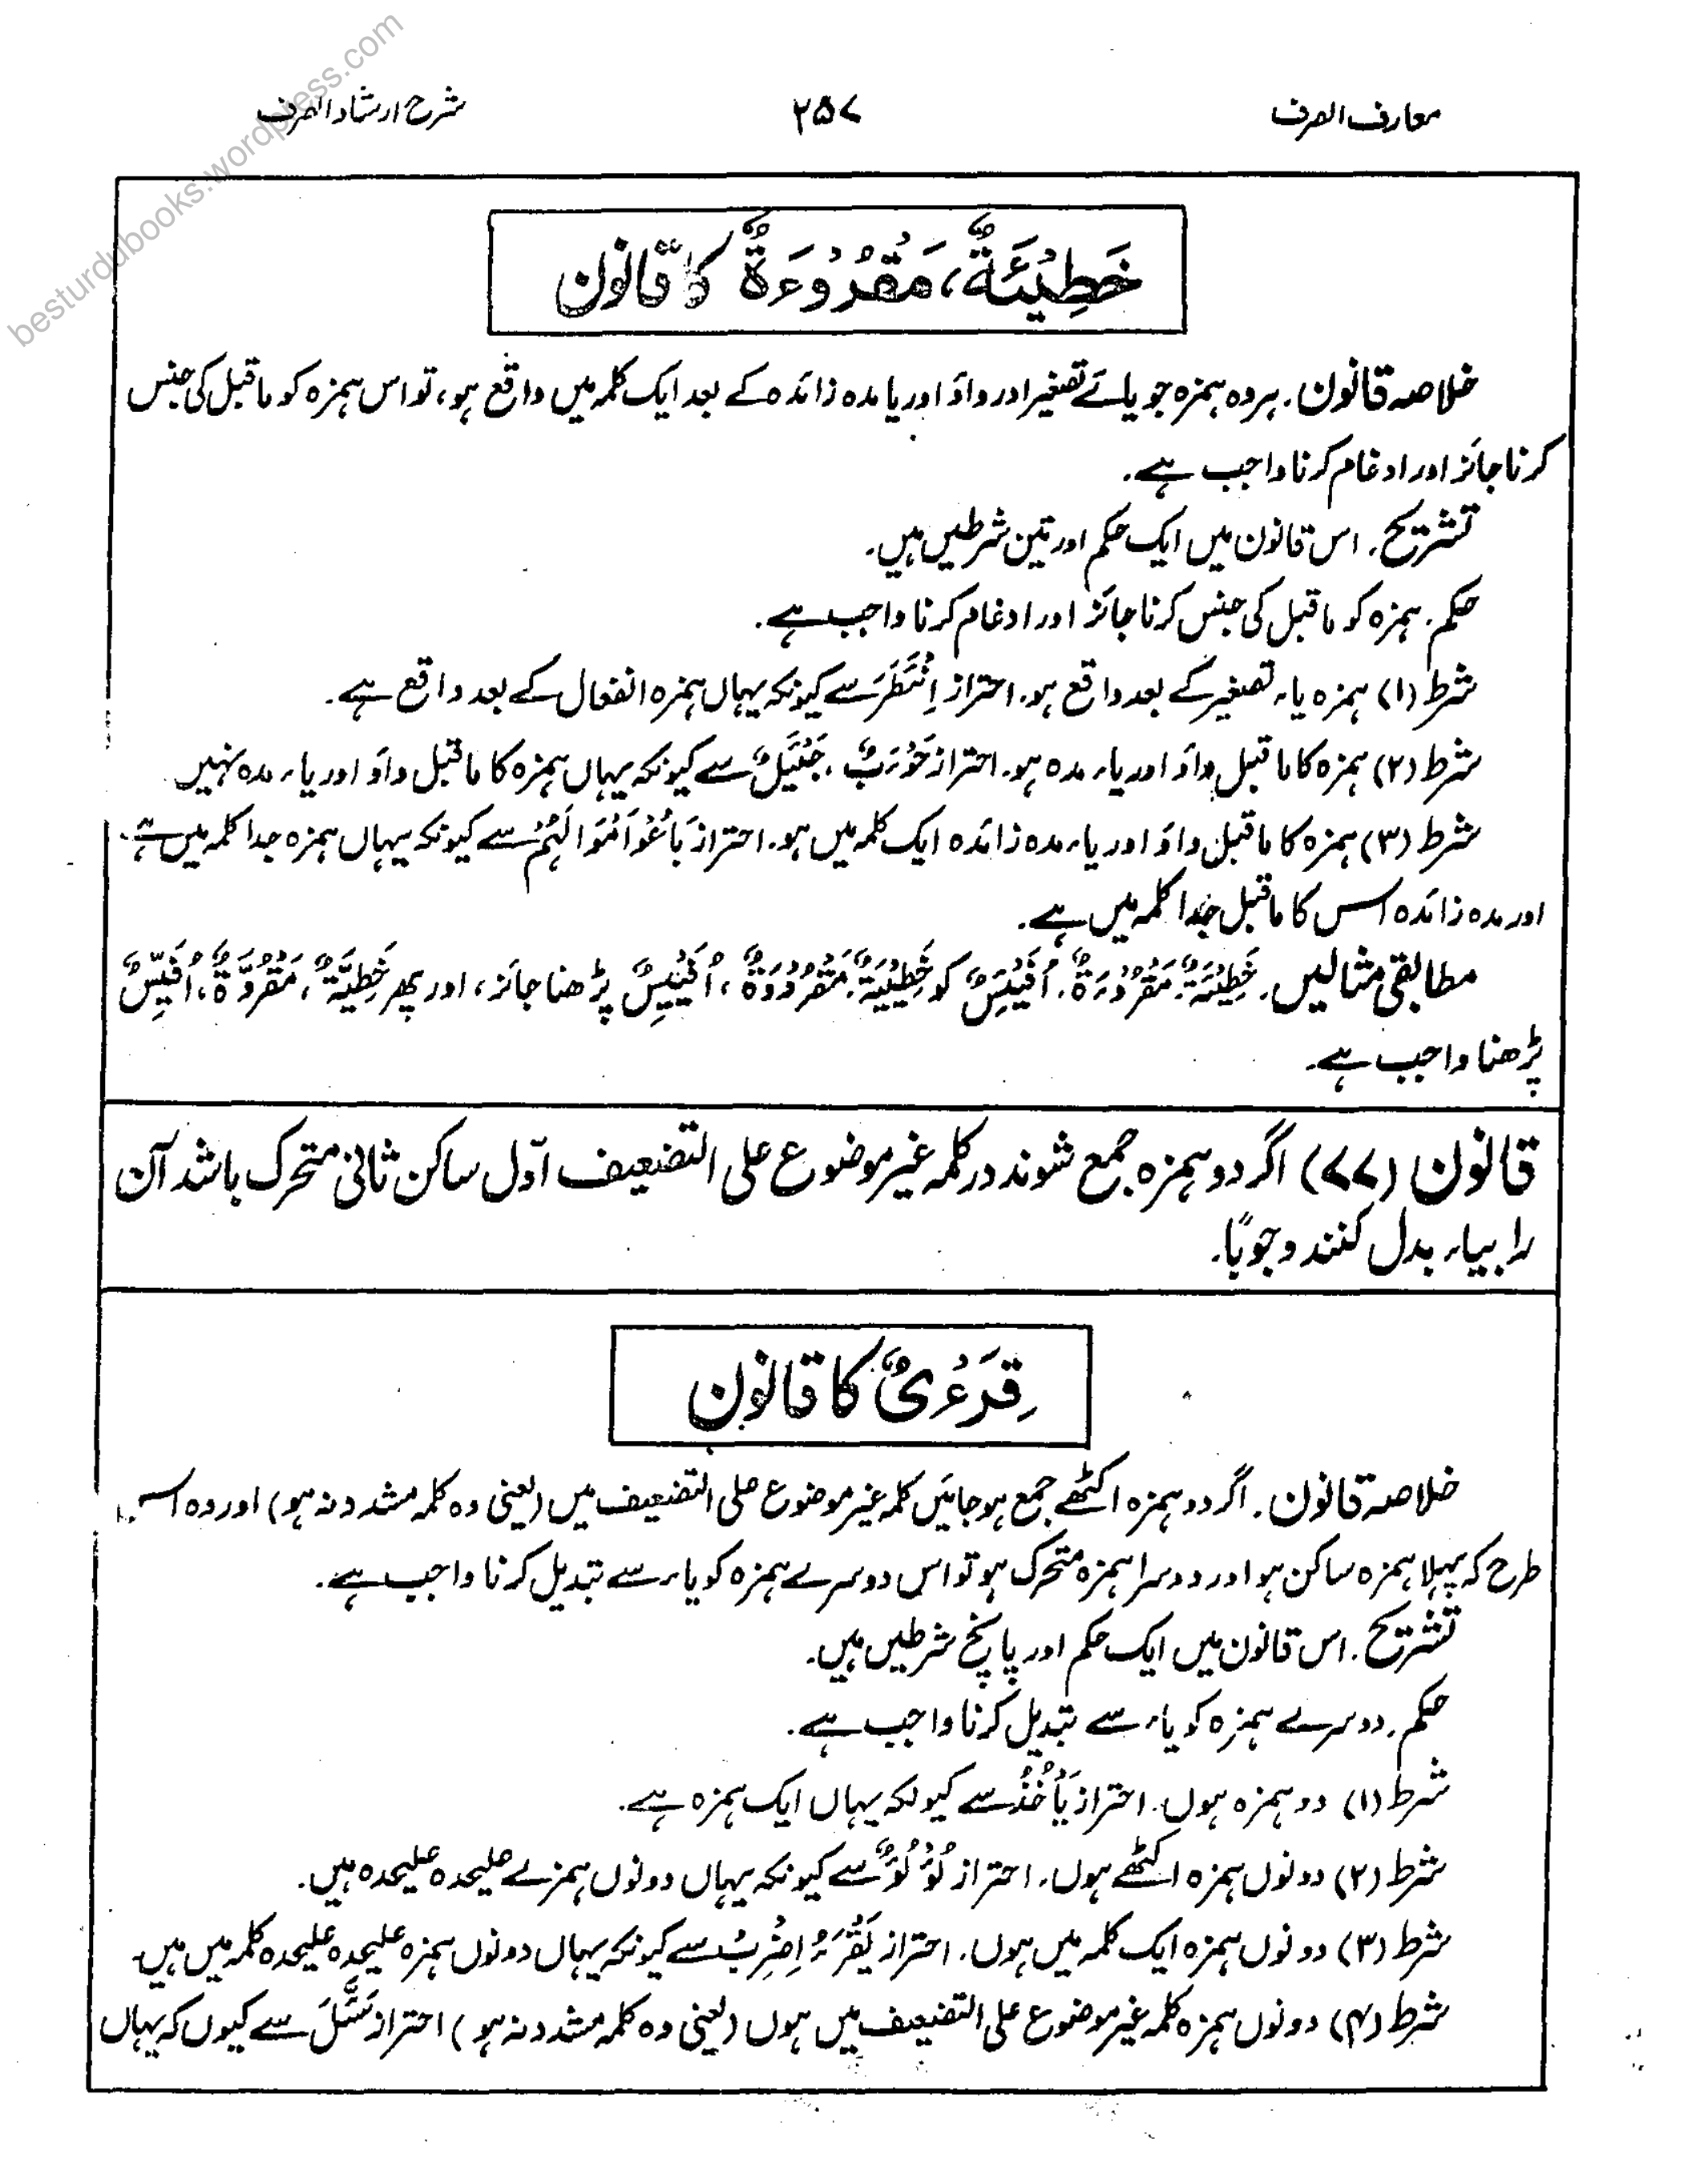 معارف الصرف
۲۵۷
شرح ارشاد الصرف
besturdubooks.wordpress.com
خَطِیْئَةٌ، مَقْرُوْءَةٌ کا قانون
خلاصہ قانون۔ ہر وہ ہمزہ جو یائے تصغیر اور واؤ اور یا مدہ زائدہ کے بعد ایک کلمہ میں واقع ہو، تو اس ہمزہ کو ما قبل کی جنس
کرنا جائز اور ادغام کرنا واجب ہے۔
تشریح۔ اس قانون میں ایک حکم اور تین شرطیں ہیں۔
حکم۔ ہمزہ کو ما قبل کی جنس کرنا جائز اور ادغام کرنا واجب ہے۔
شرط (۱) ہمزہ یاء تصغیر کے بعد واقع ہو۔ احتراز سے کیونکہ یہاں ہمزہ انفعال کے بعد واقع ہے۔
شرط (۲) ہمزہ کا ما قبل واؤ اور یاء مدہ ہو۔ احتراز حَوْءَبٌ، جَیْئَلٌ سے کیونکہ یہاں ہمزہ کا ما قبل واؤ اور یاء مدہ نہیں
شرط (۳) ہمزہ کا ما قبل واؤ اور یاء مدہ زائدہ ایک کلمہ میں ہو۔ احتراز سے کیونکہ یہاں ہمزہ جدا کلمہ میں ہے۔
اور مدہ زائدہ اس کا ما قبل جدا کلمہ میں ہے۔
مطابقی مثالیں۔ خَطِیْئَةٌ، مَقْرُوْءَةٌ، اُفَیْئِسٌ کو خَطِیْیَةٌ، مَقْرُوْوَةٌ، اُفَیْیِسٌ پڑھنا جائز، اور پھر خَطِیَّةٌ، مَقْرُوَّةٌ، اُفَیِّسٌ
پڑھنا واجب ہے۔
قانون (۷۷) اگر دو ہمزہ جمع شوند در کلمہ غیر موضوع علی التضعیف اوّل ساکن ثانی متحرک باشد آن
را بیاء بدل کنند وجوبًا۔
قِرَءْیٌ کا قانون
خلاصہ قانون۔ اگر دو ہمزہ اکٹھے جمع ہو جائیں کلمہ غیر موضوع علی التضعیف میں (یعنی وہ کلمہ مشدد نہ ہو) اور وہ اس
طرح کہ پہلا ہمزہ ساکن ہو اور دوسرا ہمزہ متحرک ہو تو اس دوسرے ہمزہ کو یاء سے تبدیل کرنا واجب ہے۔
تشریح۔ اس قانون میں ایک حکم اور پانچ شرطیں ہیں۔
حکم۔ دوسرے ہمزہ کو یاء سے تبدیل کرنا واجب ہے۔
شرط (۱) دو ہمزہ ہوں۔ احتراز یَأْخُذُ سے کیونکہ یہاں ایک ہمزہ ہے۔
شرط (۲) دونوں ہمزہ اکٹھے ہوں۔ احتراز لُؤْلُؤٌ سے کیونکہ یہاں دونوں ہمزے علیحدہ علیحدہ ہیں۔
شرط (۳) دونوں ہمزہ ایک کلمہ میں ہوں۔ احتراز یَقْرَءُ اِضْرِبْ سے کیونکہ یہاں دونوں ہمزہ علیحدہ علیحدہ کلمہ میں ہیں۔
شرط (۴) دونوں ہمزہ کلمہ غیر موضوع علی التضعیف میں ہوں (یعنی وہ کلمہ مشدد نہ ہو) احتراز سَئَّلَ سے کیوں کہ یہاں